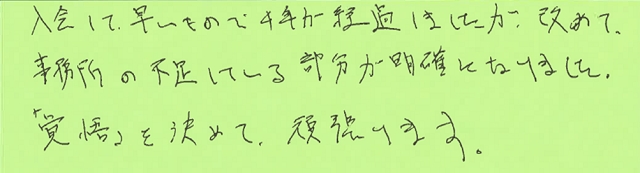 入会して、早いもので4年が経過しましたが、改めて、
事務所の不足している部分が明確になりました。
「覚悟」を決めて、頑張ります。